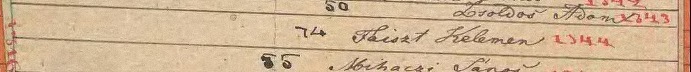 50 Zsoldos Adam 1343
74 Faiszt Kelemen 1344
55 Mihaczi János